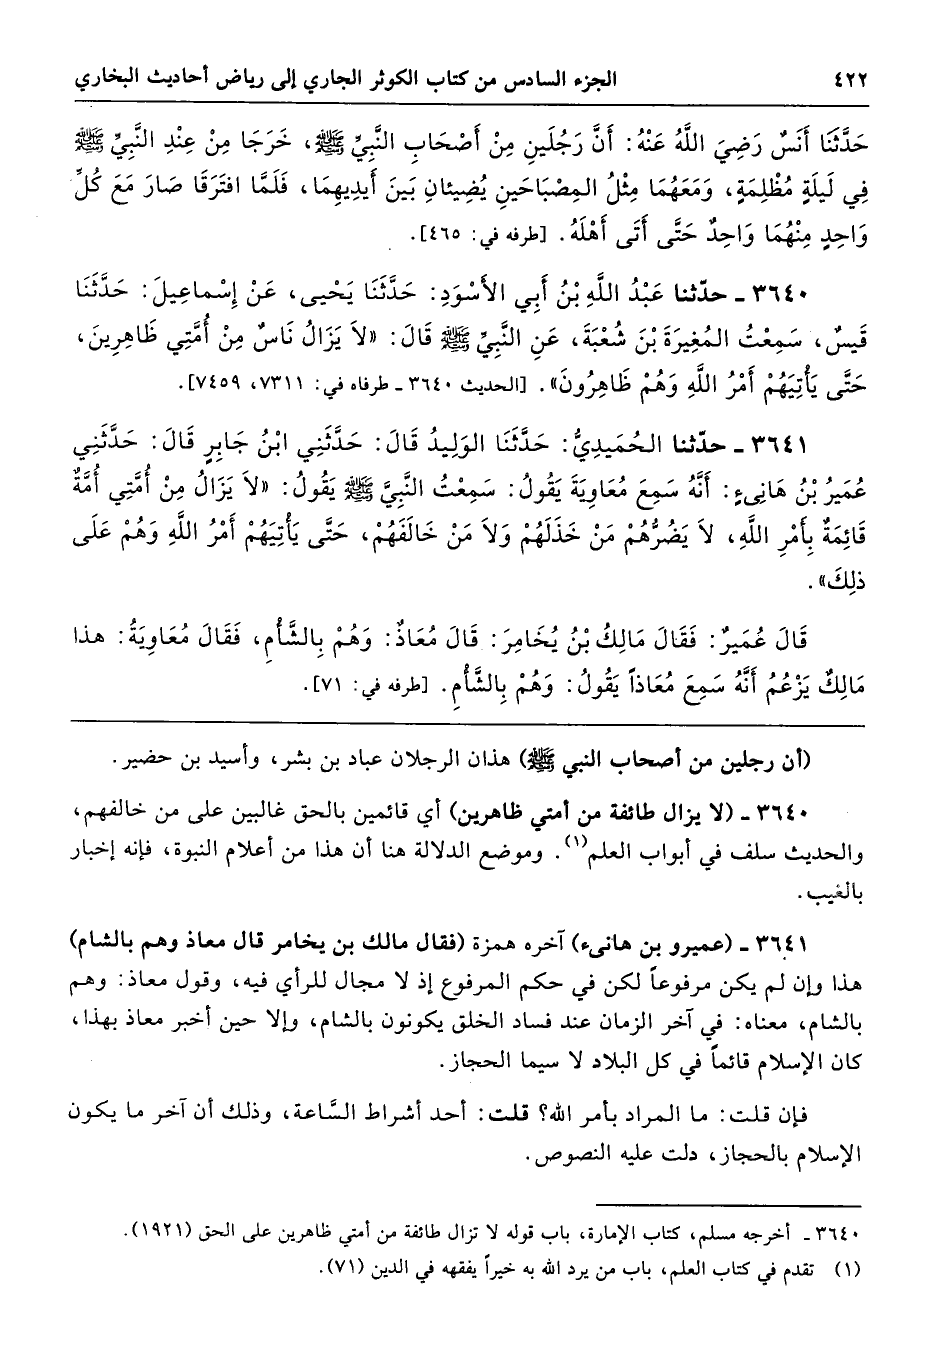 ٤٢٢ الجزء السادس من كتاب الكوثر الجاري إلى رياض أحاديث البخاري
حَدَّثَنَا أَنَسٌ رَضِيَ اللَّهُ عَنْهُ: أَنَّ رَجُلَينِ مِنْ أَصْحَابِ النَّبِيِّ ﷺ، خَرَجَا مِنْ عِنْدِ النَّبِيِّ ﷺ
فِي لَيلَةٍ مُظْلِمَةٍ، وَمَعَهُمَا مِثْلُ المِصْبَاحَينِ يُضِيئانِ بَينَ أَيدِيهِمَا، فَلَمَّا افتَرَقَا صَارَ مَعَ كُلِّ
وَاحِدٍ مِنْهُمَا وَاحِدٌ حَتَّى أَتَى أَهْلَهُ. [طرفه في: ٤٦٥].
٣٦٤٠ ـ حدّثنا عَبْدُ اللَّهِ بْنُ أَبِي الأَسْوَدِ: حَدَّثَنَا يَحْيى، عَنْ إِسْماعِيلَ: حَدَّثَنَا
قَيسٌ، سَمِعْتُ المُغِيرَةَ بْنَ شُعْبَةَ، عَنِ النَّبِيِّ ﷺ قَالَ: «لاَ يَزَالُ نَاسٌ مِنْ أُمَّتِي ظَاهِرِينَ،
حَتَّى يَأْتِيَهُمْ أَمْرُ اللَّهِ وَهُمْ ظَاهِرُونَ». [الحديث ٣٦٤٠ ـ طرفاه في: ٧٣١١، ٧٤٥٩].
٣٦٤١ ـ حدّثنا الحُمَيدِيُّ: حَدَّثَنَا الوَلِيدُ قَالَ: حَدَّثَنِي ابْنُ جَابِرٍ قَالَ: حَدَّثَنِي
عُمَيرُ بْنُ هَانِىءٍ: أَنَّهُ سَمِعَ مُعَاوِيَةَ يَقُولُ: سَمِعْتُ النَّبِيَّ ﷺ يَقُولُ: «لاَ يَزَالُ مِنْ أُمَّتِي أُمَّةٌ
قَائِمَةٌ بِأَمْرِ اللَّهِ، لاَ يَضُرُّهُمْ مَنْ خَذَلَهُمْ وَلاَ مَنْ خَالَفَهُمْ، حَتَّى يَأْتِيَهُمْ أَمْرُ اللَّهِ وَهُمْ عَلَى
ذلِكَ».
قَالَ عُمَيرٌ: فَقَالَ مَالِكُ بْنُ يُخَامِرَ: قَالَ مُعَاذٌ: وَهُمْ بِالشَّأْمِ، فَقَالَ مُعَاوِيَةُ: هذا
مَالِكٌ يَزْعُمُ أَنَّهُ سَمِعَ مُعَاذاً يَقُولُ: وَهُمْ بِالشَّأْمِ. [طرفه في: ٧١].
(أن رجلين من أصحاب النبي ﷺ) هذان الرجلان عباد بن بشر، وأسيد بن حضير.
٣٦٤٠ ـ (لا يزال طائفة من أمتي ظاهرين) أي قائمين بالحق غالبين على من خالفهم،
والحديث سلف في أبواب العلم(١). وموضع الدلالة هنا أن هذا من أعلام النبوة، فإنه إخبار
بالغيب.
٣٦٤١ ـ (عميرو بن هانىء) آخره همزة (فقال مالك بن يخامر قال معاذ وهم بالشام)
هذا وإن لم يكن مرفوعاً لكن في حكم المرفوع إذ لا مجال للرأي فيه، وقول معاذ: وهم
بالشام، معناه: في آخر الزمان عند فساد الخلق يكونون بالشام، وإلا حين أخبر معاذ بهذا،
كان الإسلام قائماً في كل البلاد لا سيما الحجاز.
فإن قلت: ما المراد بأمر الله؟ قلت: أحد أشراط السَّاعة، وذلك أن آخر ما يكون
الإسلام بالحجاز، دلت عليه النصوص.
٣٦٤٠ ـ أخرجه مسلم، كتاب الإمارة، باب قوله لا تزال طائفة من أمتي ظاهرين على الحق (١٩٢١).
(١) تقدم في كتاب العلم، باب من يرد الله به خيراً يفقهه في الدين (٧١).